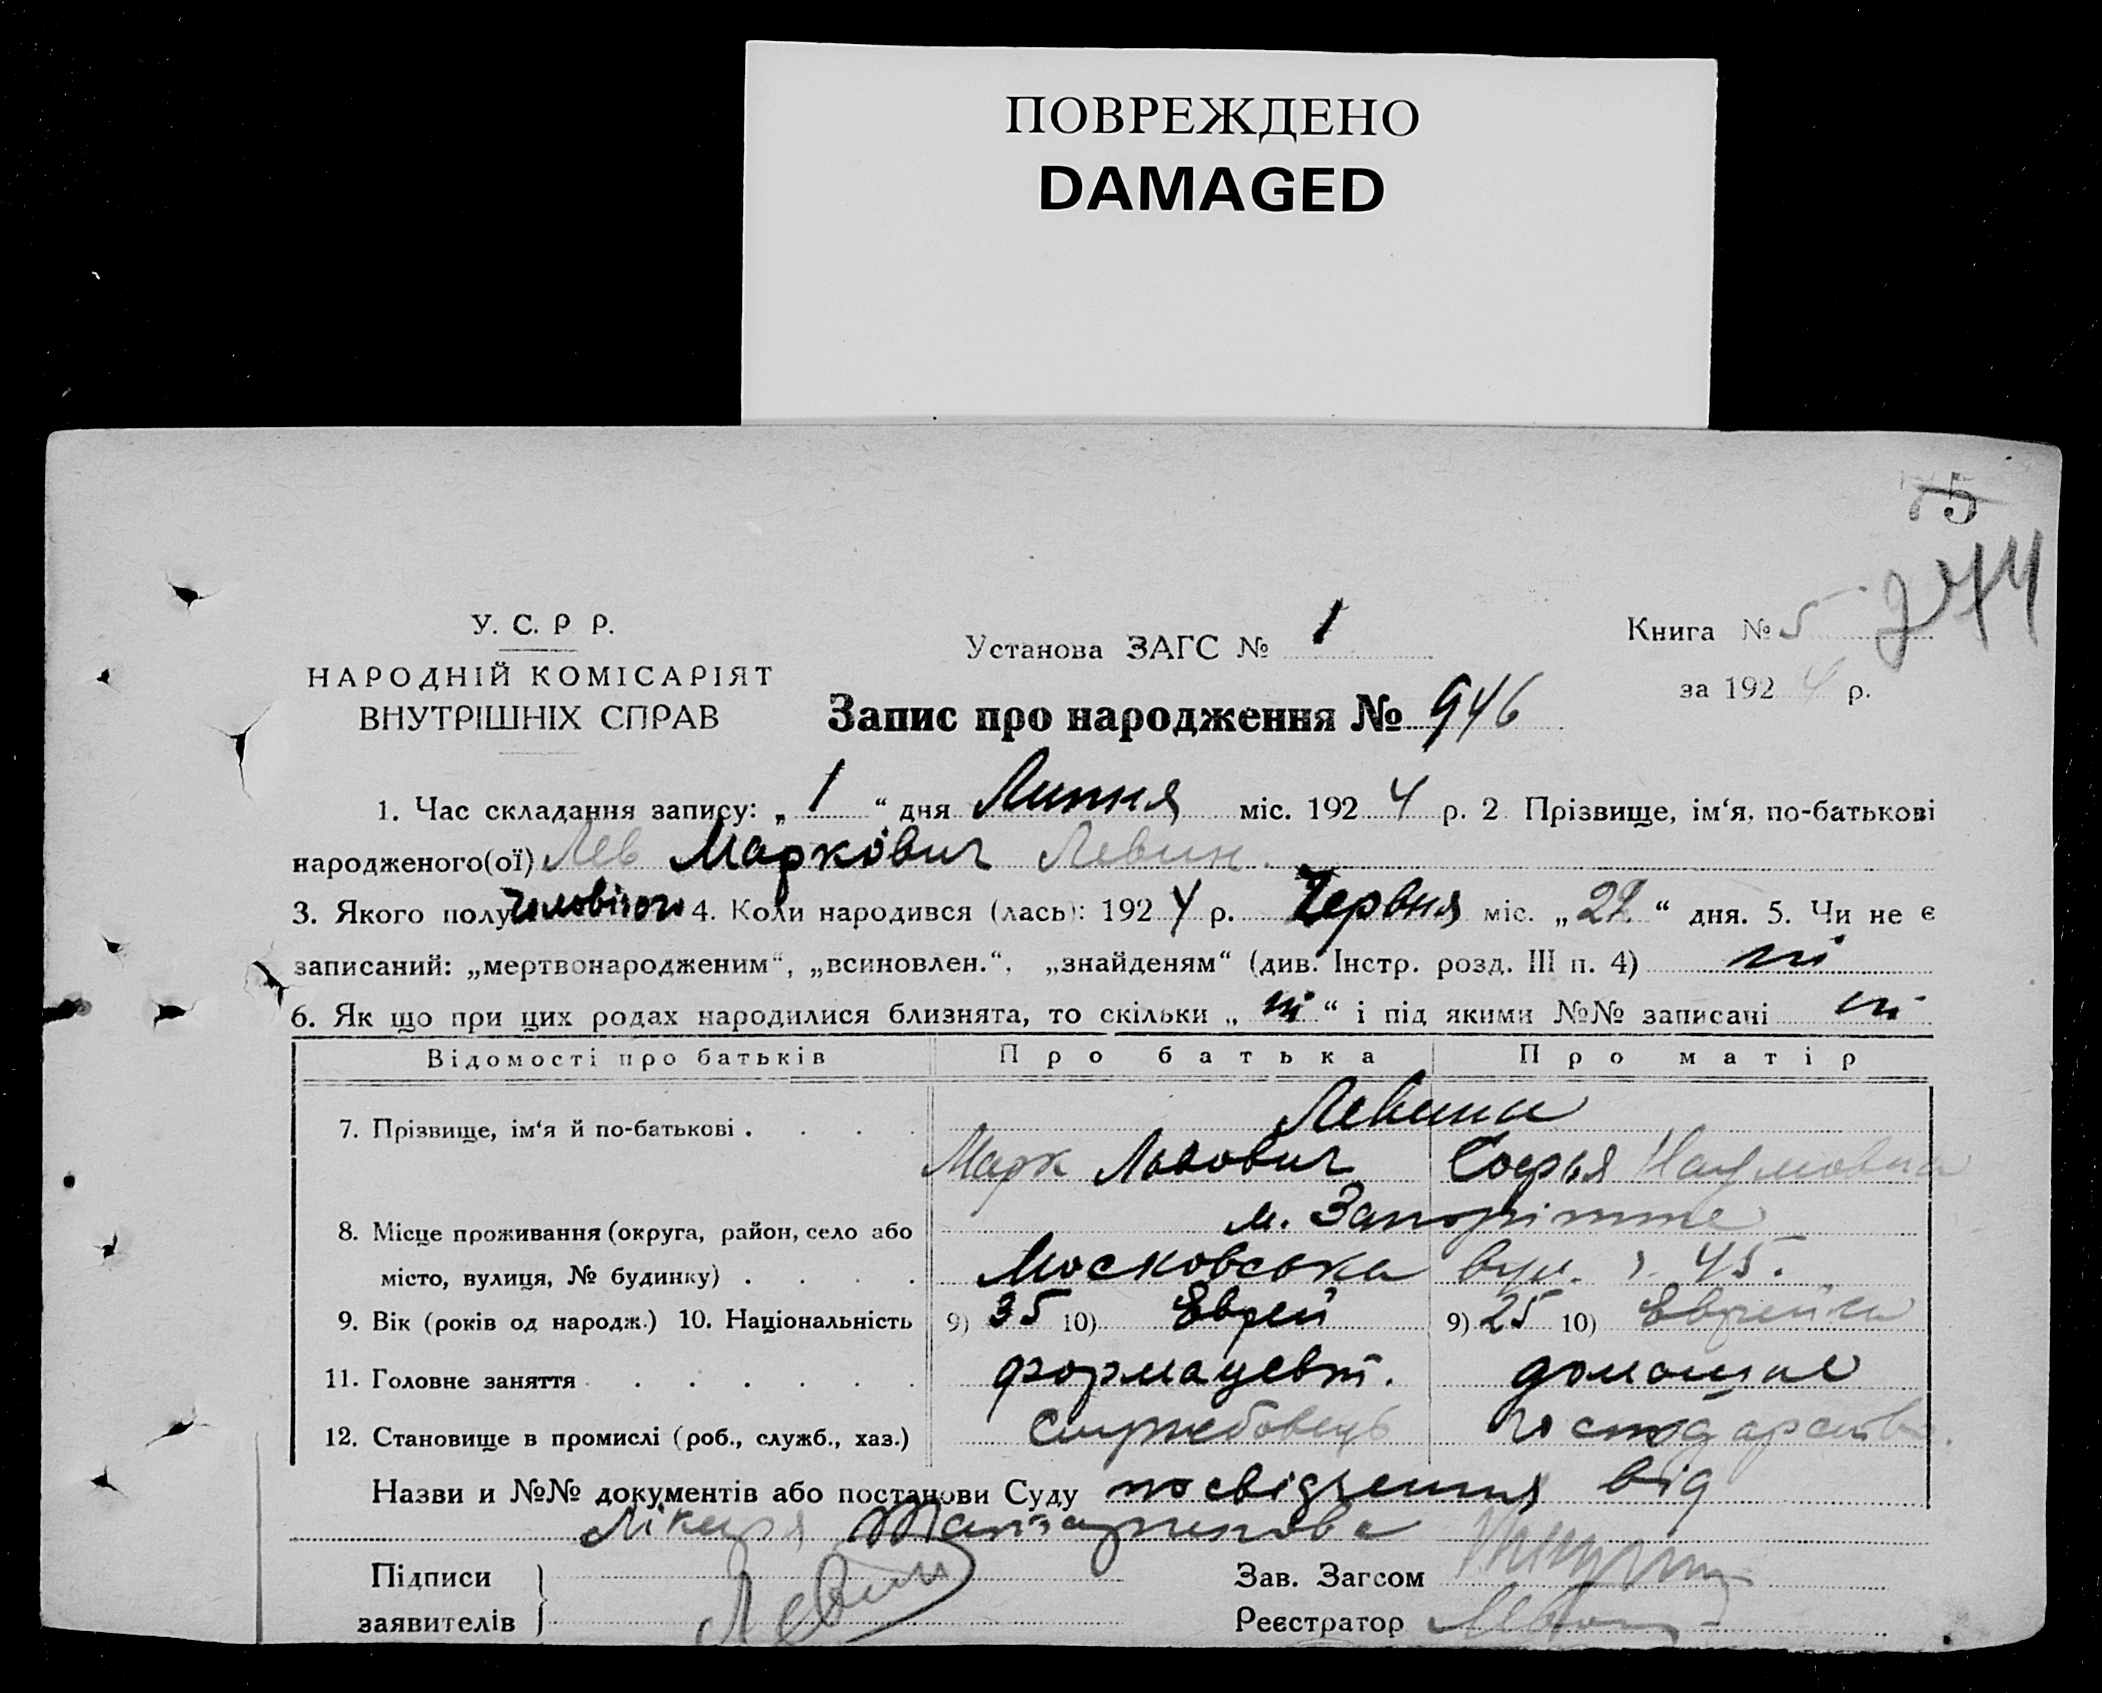 ПОВРЕЖДЕНО
DAMAGED
75
274
У. С. Р Р.
НАРОДНІЙ КОМІСАРІЯТ
ВНУТРІШНІХ СПРАВ
Установа ЗАГС № 1
Книга № 5
за 192 4 р.
Запис про народження № 946
1. Час складання запису: „ 1 “ дня Липня міс. 192 4 р. 2 Прізвище, ім‘я, по-батькові
народженого(ої) Лев Маркович Левин.
3. Якого полу чоловічого 4. Коли народився (лась): 192 4 р. Червня міс. „ 22 “ дня. 5. Чи не є
записаний: „мертвонародженим“, „всиновлен.“, „знайденям“ (див. Інстр. розд. III п. 4) ні
6. Як що при цих родах народилися близнята, то скільки „ ні “ і під якими №№ записані ні
Відомості про батьків Про батька Про матір
7. Прізвище, ім‘я й по-батькові . . . . Левини
Марк Львович Софья Наумовна
8. Місце проживання (округа, район, село або м. Запоріжже
місто, вулиця, № будинку) . . . . Московська вул. 45.
9. Вік (років од народж.) 10. Національність 9) 35 10) Еврей 9) 25 10) Еврейка
11. Головне заняття . . . . . . . формацевт. домашне
12. Становище в промислі (роб., служб., хаз.) Службовець господарство.
Назви и №№ документів або постанови Суду посвідчення від
Лікаря
Підписи
заявителів Левин
Зав. Загсом
Реєстратор